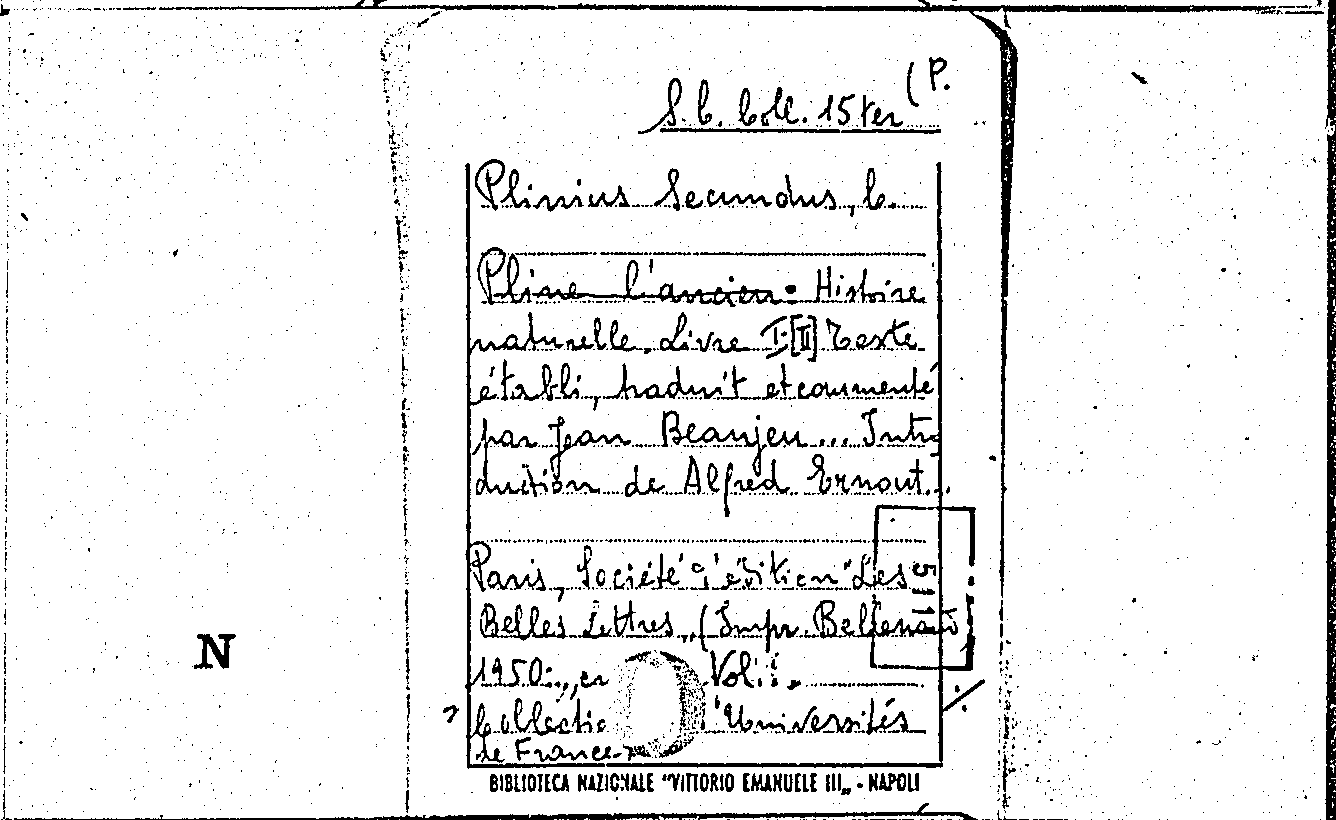 (P.
S. C. Coll. 15 ter
Plinius Secundus, C.
Pline l'ancien. Histoire
naturelle. Livre I-[II] Texte
établi, traduit et commenté
par Jean Beaujeu ... Intro
duction de Alfred Ernout...
Paris, Société d'édition "Les
Belles Lettres„ (Impr. Bellenand)
1950: Vol.
Collectio Universités
de France
N
BIBLIOTECA NAZIONALE "VITTORIO EMANUELE III„ - NAPOLI